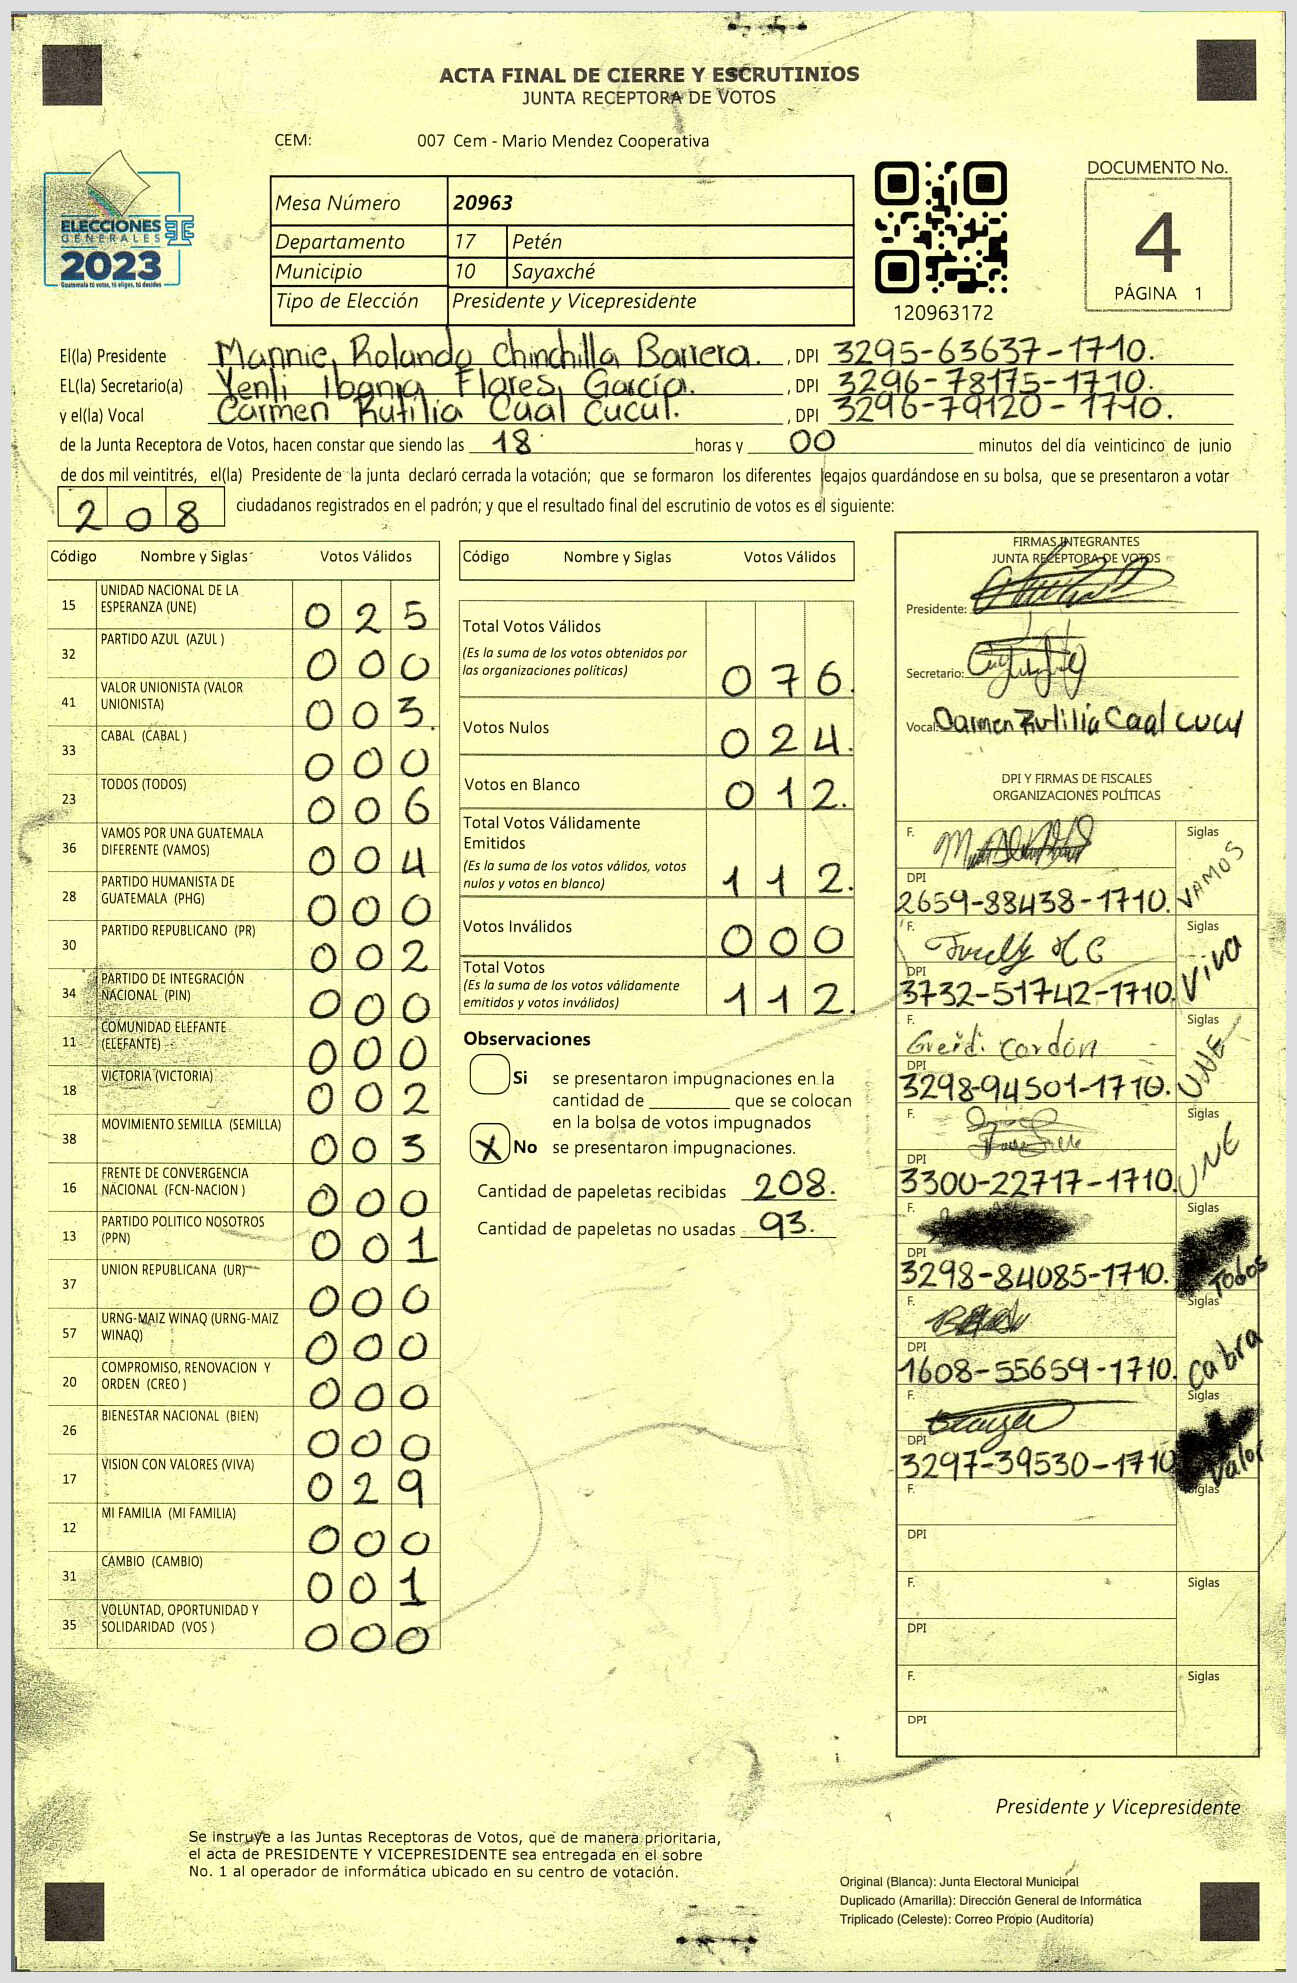 ACTA FINAL DE CIERRE Y ESCRUTINIOS
JUNTA RECEPTORA DE VOTOS
CEM: 007 Cem - Mario Mendez Cooperativa
ELECCIONES
GENERALES
2023
Guatemala tú votas, tú eliges, tú decides
Mesa Número 20963
Departamento 17 Petén
Municipio 10 Sayaxché
Tipo de Elección Presidente y Vicepresidente
120963172
DOCUMENTO No.
4
PÁGINA 1
El(la) Presidente Mannie Rolando Chinchilla Barrera. , DPI 3295-63637-1710.
EL(la) Secretario(a) Yenli Ibania Flores García. , DPI 3296-78175-1710.
y el(la) Vocal Carmen Rutilia Caal Cucul. , DPI 3296-79120-1710.
de la Junta Receptora de Votos, hacen constar que siendo las 18 horas y 00 minutos del día veinticinco de junio
de dos mil veintitrés, el(la) Presidente de la junta declaró cerrada la votación; que se formaron los diferentes legajos guardándose en su bolsa, que se presentaron a votar
208 ciudadanos registrados en el padrón; y que el resultado final del escrutinio de votos es el siguiente:
Código Nombre y Siglas Votos Válidos
15 UNIDAD NACIONAL DE LA ESPERANZA (UNE) 025
32 PARTIDO AZUL (AZUL ) 000
41 VALOR UNIONISTA (VALOR UNIONISTA) 003.
33 CABAL (CABAL ) 000
23 TODOS (TODOS) 006
36 VAMOS POR UNA GUATEMALA DIFERENTE (VAMOS) 004
28 PARTIDO HUMANISTA DE GUATEMALA (PHG) 000
30 PARTIDO REPUBLICANO (PR) 002
34 PARTIDO DE INTEGRACIÓN NACIONAL (PIN) 000
11 COMUNIDAD ELEFANTE (ELEFANTE) 000
18 VICTORIA (VICTORIA) 002
38 MOVIMIENTO SEMILLA (SEMILLA) 003
16 FRENTE DE CONVERGENCIA NACIONAL (FCN-NACION ) 000
13 PARTIDO POLITICO NOSOTROS (PPN) 001
37 UNION REPUBLICANA (UR) 000
57 URNG-MAIZ WINAQ (URNG-MAIZ WINAQ) 000
20 COMPROMISO, RENOVACION Y ORDEN (CREO ) 000
26 BIENESTAR NACIONAL (BIEN) 000
17 VISION CON VALORES (VIVA) 029
12 MI FAMILIA (MI FAMILIA) 000
31 CAMBIO (CAMBIO) 001
35 VOLUNTAD, OPORTUNIDAD Y SOLIDARIDAD (VOS ) 000
Código Nombre y Siglas Votos Válidos
Total Votos Válidos
(Es la suma de los votos obtenidos por
las organizaciones políticas) 076.
Votos Nulos 024.
Votos en Blanco 012.
Total Votos Válidamente
Emitidos
(Es la suma de los votos válidos, votos
nulos y votos en blanco) 112.
Votos Inválidos 000
Total Votos
(Es la suma de los votos válidamente
emitidos y votos inválidos) 112.
Observaciones
Si se presentaron impugnaciones en la
cantidad de que se colocan
en la bolsa de votos impugnados
X No se presentaron impugnaciones.
Cantidad de papeletas recibidas 208.
Cantidad de papeletas no usadas 93.
FIRMAS INTEGRANTES
JUNTA RECEPTORA DE VOTOS
Presidente:
Secretario:
Vocal: Carmen Rutilia Caal Cucul
DPI Y FIRMAS DE FISCALES
ORGANIZACIONES POLÍTICAS
F. Siglas VAMOS
DPI
2659-88438-1710.
F. Siglas Viva
DPI
3732-51742-1710.
F. Greidi Cordón Siglas UNE
DPI
3298-94501-1710.
F. Siglas UNE
DPI
3300-22717-1710.
F. Siglas Todos
DPI
3298-84085-1710.
F. Siglas Cabra
DPI
1608-55659-1710.
F. Siglas Valor
DPI
3297-39530-1710
F. Siglas
DPI
F. Siglas
DPI
F. Siglas
DPI
Presidente y Vicepresidente
Se instruye a las Juntas Receptoras de Votos, que de manera prioritaria,
el acta de PRESIDENTE Y VICEPRESIDENTE sea entregada en el sobre
No. 1 al operador de informática ubicado en su centro de votación.
Original (Blanca): Junta Electoral Municipal
Duplicado (Amarilla): Dirección General de Informática
Triplicado (Celeste): Correo Propio (Auditoría)